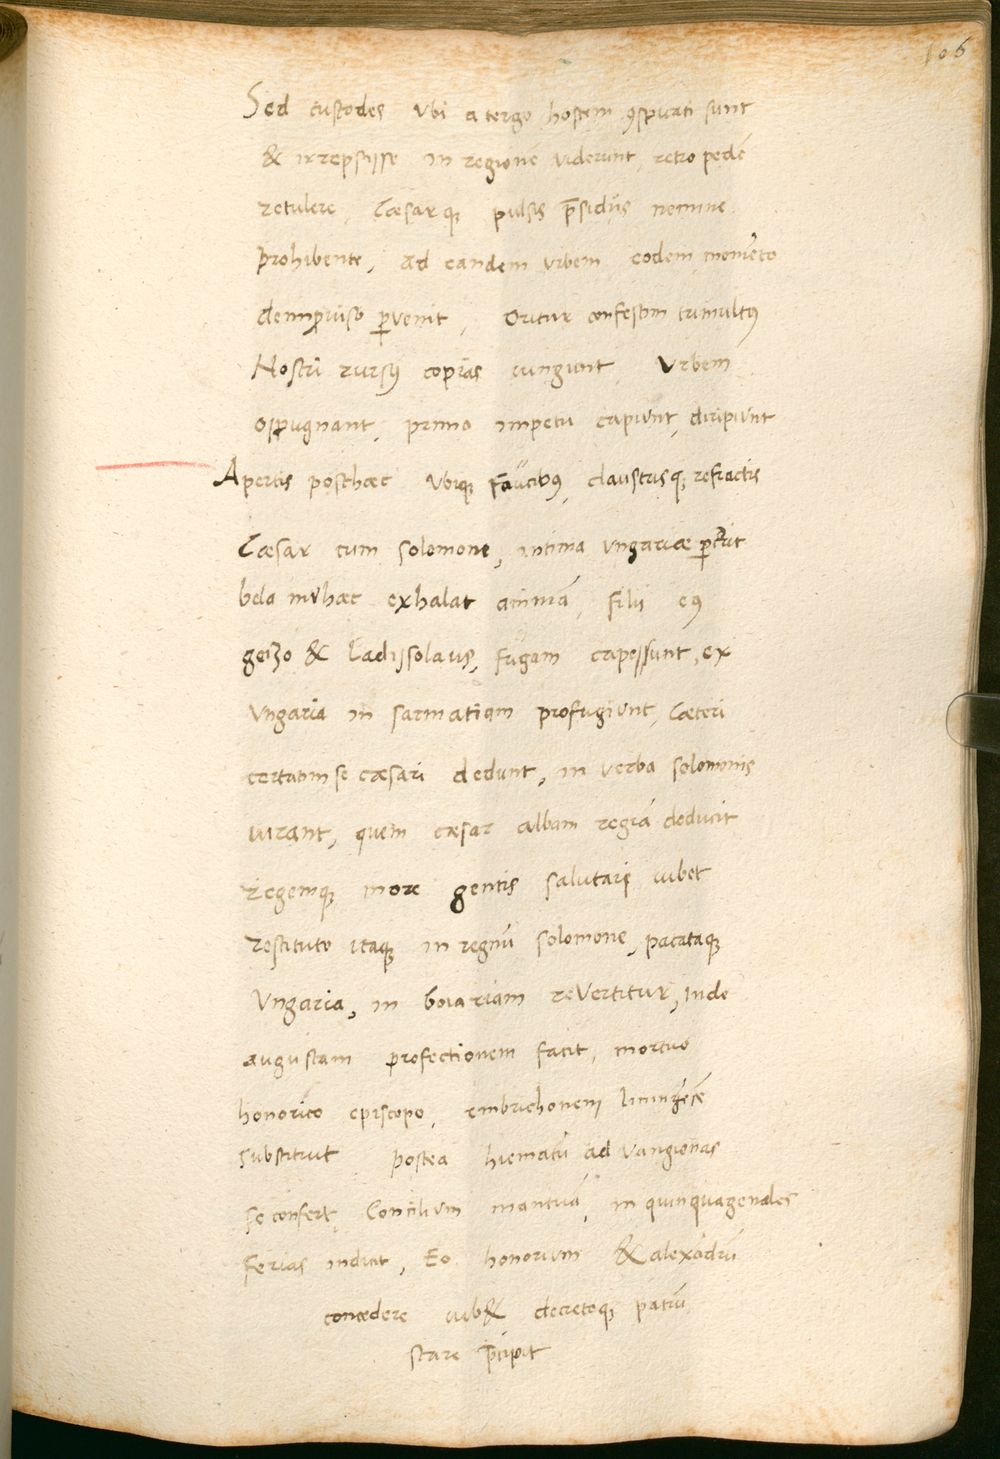 106
Sed custodes ubi a tergo hostem ꝯspicati sunt
& irrepsisse in regionē viderunt, retro pedē
retulere, Cæsarqꝫ pulsis p̄sidijs nemine
prohibente, ad eandem urbem eodem momēto
deimꝓviso ꝑvenit, Oritur confestim tumultꝰ
Nostri rursꝰ copias iungunt Urbem
oppugnant, primo impetu capiunt, diripiunt
Apertis posthæc ubiqꝫ Faucibꝰ, claustrisqꝫ refractis
Cæsar cum solomone, intima ungariæ
bela inthæc exhalat animā, filii eꝰ
geizo & Ladissolaus, fugam capessunt, ex
Ungaria in sarmatiam profugiunt, Cæteri
certatim se cæsari dedunt, in verba solomonis
iurant, quem cæsar albam regiā deducit
regemqꝫ more gentis salutari iubet
restituto itaqꝫ in regnū solomone, pacataqꝫ
Ungaria, in boiariam revertitur, inde
augustam profectionem facit, mortuo
honorico episcopo, embrichonem
substituit postea hiematū ad vangionas
se confert, Concilium mantuā, in quinquagenales
ferias indicit, Eo honorium & alexādrū
concedere iub& decretoqꝫ patrū
stare p̄cipit